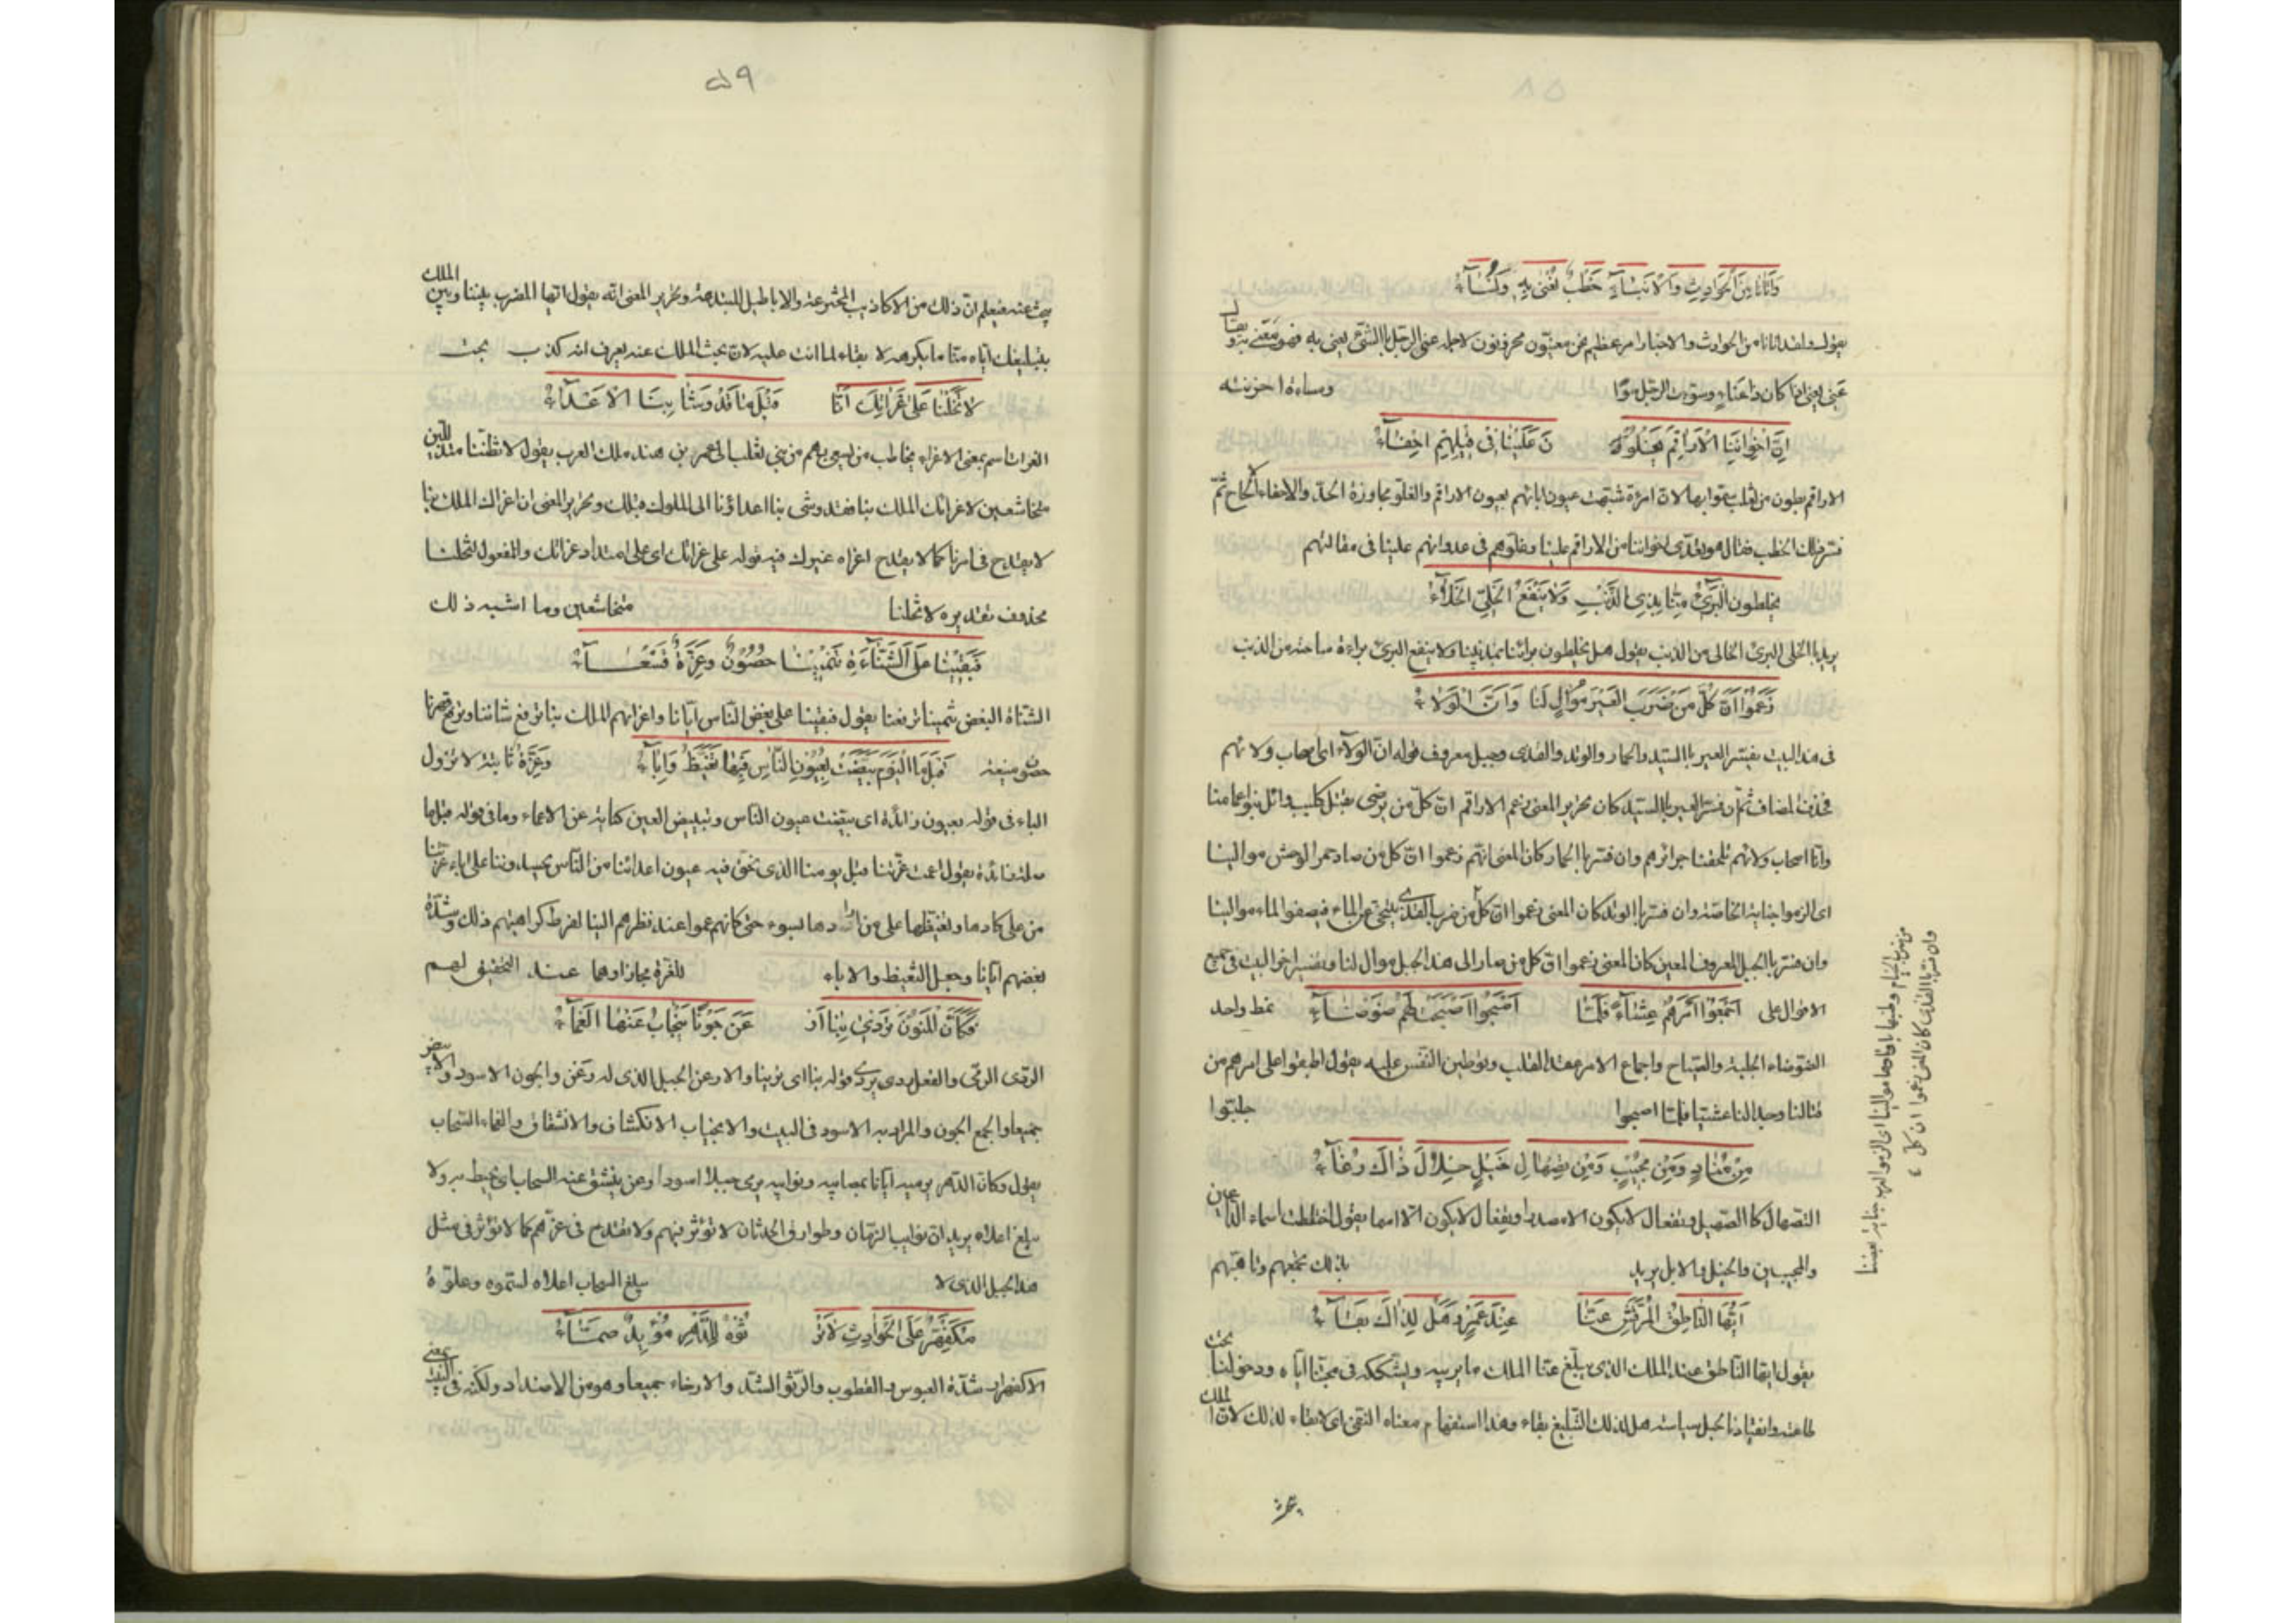 وَاَتَانَا مِنَ الْحَوَادِثِ وَالْاَنْبَاءِ خَطْبٌ نُعْنٰى بِهِ وَنُسَاءُ
يقول ولقد اتانا من الحوادث والاخبار امر عظيم نحن معنيّون محزونون لاجله عنى الرجل بالشئ يعنى به فهو معنى به ويقال
عنى يعنى اذا كان ذا عناء وسؤت الرجل سوءا ومساءة احزنته
اِنَّ اِخْوَانَنَا الْاَرَاقِمَ يَغْلُونَ عَلَيْنَا فِى قِيلِهِمْ اِحْفَاءُ
الاراقم بطون من تغلب سمّوا بها لانّ امرءة شبّهت عيون ابائهم بعيون الاراقم والغلو مجاوزة الحدّ والاحفاء الالحاح ثمّ
فسّر ذلك الخطب فقال هو تعدّى اخواننا من الاراقم علينا وغلوّهم فى عدوانهم علينا فى مقالتهم
يخلطون الْبَرِىْءَ مِنَّا بِذِى الذَّنْبِ وَلَا يَنْفَعُ الْخَلِىَّ الْخَلَاءُ
يريد بالخلى البرئ الخالى من الذنب يقول هم يخلطون برائنا بمذنبينا ولا ينفع البرئ براءة ساحته من الذنب
زَعَمُوا اَنَّ كُلَّ مَنْ ضَرَبَ الْعَيْرَ مُوَالٍ لَنَا وَاَنَّا الْوَلَاءُ
فى هذا البيت يفسّر العير بالسيّد والحمار والوتد والقذى وجبل معروف قوله انّا الولاء اى اصحاب ولائهم
فحذف المضاف ثمّ ان فسّر العير بالسيّد كان تحرير المعنى زعم الاراقم انّ كلّ من يرضى بقتل كليب وائل بنو اعمامنا
وانّا اصحاب ولائهم تلحقنا جرائرهم وان فسّر بالحمار كان المعنى انّهم زعموا انّ كل من صاد حمر الوحش موالينا
اى الزموا جناية الخاصّة وان فسّر بالوتد كان المعنى زعموا انّ كلّ من ضرب القذى ليتنحى عن الماء فيصفوا الماء موالينا
وان فسّر بالجبل المعروف المعين كان المعنى زعموا انّ كل من صار الى هذا الجبل موال لنا وتفسير اخر البيت فى جميع
الاقوال على نمط واحد
اَجْمَعُوا اَمْرَهُمْ عِشَاءً فَلَمَّا اَصْبَحُوا اَصْبَحَتْ لَهُمْ ضَوْضَاءُ
الضوضاء الجلبة والصياح واجماع الامر عقد القلب وتوطين النّفس عليه يقول اطبقوا على امرهم من
قتالنا وجدالنا عشيّا فلمّا اصبحوا جلبوا
مِنْ مُنَادٍ وَمِنْ مُجِيْبٍ وَمِنْ تَصْهَالِ خَيْلٍ خِلَالَ ذَاكَ رُغَاءُ
التصهال كالصهيل وتفعال لايكون الا مصدرا وتفعال لايكون الّا اسما يقول اختلطت اسماء الداعين
والمجيبين والخيل والابل يريد بذلك تجمّعهم وتاهّبهم
اَيُّهَا النَّاطِقُ الْمُرَقِّشُ عَنَّا عِنْدَ عَمْرٍو وَهَلْ لِذَاكَ بَقَاءُ
يقول ايّها النّاطق عند الملك الذى يبلّغ عنّا الملك ما يريبه ويشكّكه فى محبّتنا ايّاه ودخولنا تحت
طاعته وانقيادنا لحبل سياسته هل لذلك التّبليغ بقاء وهذا استفهام معناه النّفى اى لا بقاء لذلك لانّ الملك
يبحث
وان فسّر بالقذى كان المعنى زعموا ان كل
من ضرب الخيام وطنبها باوتادها موالينا اى الزموا العرب جناية بعضنا
٥٩
يبحث عنه فيعلم انّ ذلك من الاكاذيب المخترعة والاباطيل المبتدعة وتحرير المعنى انّه يقول ايّها المضرب بيننا وبين الملك
بتبليغك ايّاه عنّا ما يكرهه لا بقاء لما انت عليه لانّ بحث الملك عنه يعرف انه كذب بحت
لَا تَخَلْنَا عَلٰى غَرَائِكَ اِنَّا قَبْلُ مَا قَدْ وَشَا بِنَا الْاَعْدَاءُ
الغرات اسم بمعنى الاغراء يخاطب من يسعى بهم من بنى تغلب الى عمرو بن هند ملك العرب يقول لا تظنّنا متذلّلين
متخاشعين لاغرائك الملك بنا فقد وشى بنا اعداؤنا الى الملوك قبلك وتحرير المعنى ان اغراك الملك بنا
لا يقدح فى امرنا كما لا يقدح اغراء غيرك فيه قوله على غرائك اى على امتداد غرائك والمفعول لتخلنا
محذوف تقديره لا تخلنا متخاشعين وما اشبه ذلك
فَبَقِيْنَا عَلَى الشَّنَاءَةِ تَنْمِيْنَا حُصُوْنٌ وَعِزَّةٌ قَعْسَاءُ
الشناة البغض تنمينا ترفعنا يقول فبقينا على بغض النّاس ايّانا واغرائهم الملك بنا ترفع شاننا وترفع قدرنا
حصون منيعة وعزّة ثابتة لا تزول
قَبْلَ مَا الْيَوْمِ بَيَّضَتْ بِعُيُوْنِ النَّاسِ فِيْهَا تَغَيُّظٌ وَاِبَاءُ
الباء فى قوله بعيون زائدة اى بيّضت عيون النّاس وتبييض العين كناية عن الاعماء وما فى قوله قبل ما
صلة زائدة يقول اعمت عزّتنا قبل يومنا الذى نحن فيه عيون اعدائنا من النّاس يحسدوننا على اباء عزّتنا
من على كادها وتغيّظها على من ارادها بسوء حتى كانهم عموا عند نظرهم الينا لفرط كراهيتهم ذلك وشدّة
بغضهم ايّانا وجعل التغيظ والاباء للغرة مجازا وهما عند التحقيق لهم
فَكَاَنَّ الْمَنُوْنَ تَرْدِىْ بِنَا اَرْعَنَ جَوْنًا يَنْجَابُ عَنْهَا الْعَمَاءُ
الرّدى الرمى والفعل ردى يردى قوله بنا اى تردينا والارعن الجبل الذى له رعن والجون الاسود والابيض
جميعا والجمع الجون والمراد به الاسود فى البيت والانجياب الانكشاف والانشقاق والغماء السّحاب
يقول وكانّ الدّهر برميه ايّانا بمصائبه ونوائبه يرمى جبلا اسودا رعن ينشق عنه السحاب اى يحيط به ولا
يبلغ اعلاه يريد انّ نوايب الزّمان وطوارق الحدثان لا تؤثر فيهم ولا تقدح فى عزّهم كما لا تؤثّر فى مثل
هذا الجبل الذى لا يبلغ السحاب اعلاه لسموه وعلوّه
مُكْفَهِرٌّ عَلَى الْحَوَادِثِ لَا تَرْتُوْهُ لِلدَّهْرِ مُؤْيِدٌ صَمَّاءُ
الاكفهرار شدّة العبوس والقطوب والرّتو الشد والارخاء جميعا وهو من الاضداد ولكنّه فى البيت بمعنى